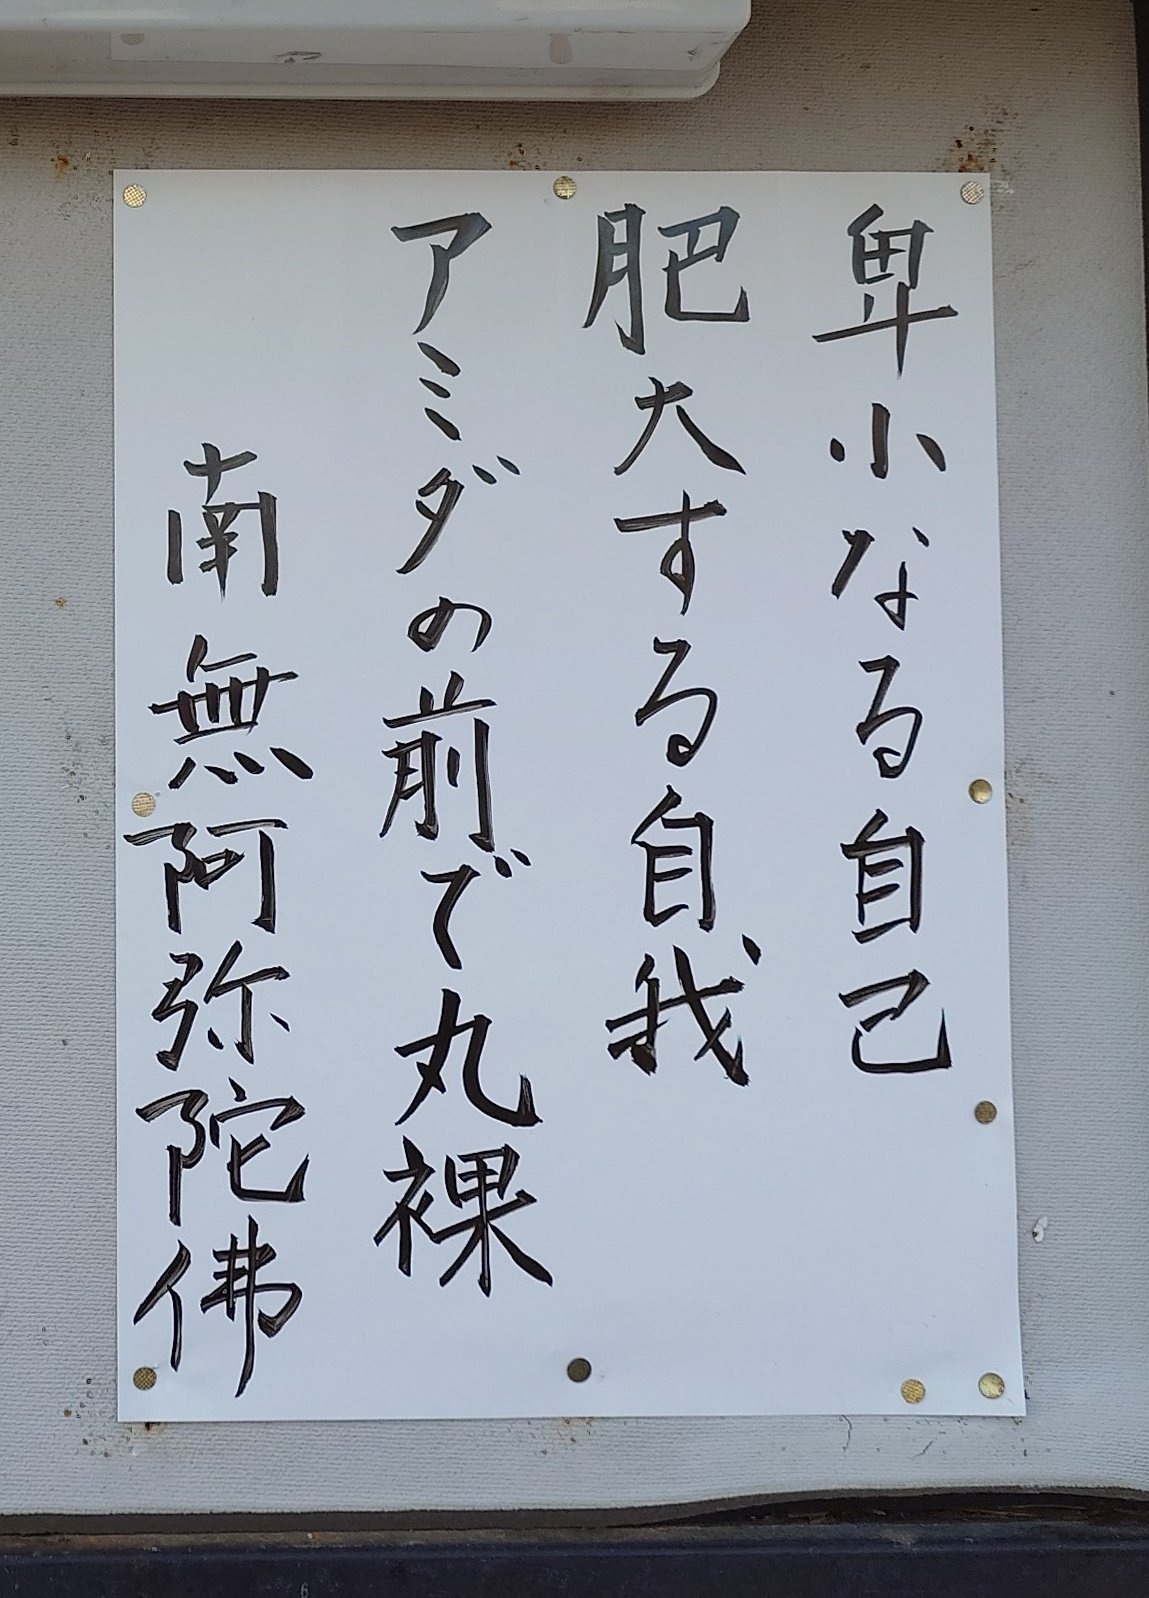 卑小なる自己
肥大する自我
アミダの前で丸裸
南無阿弥陀佛